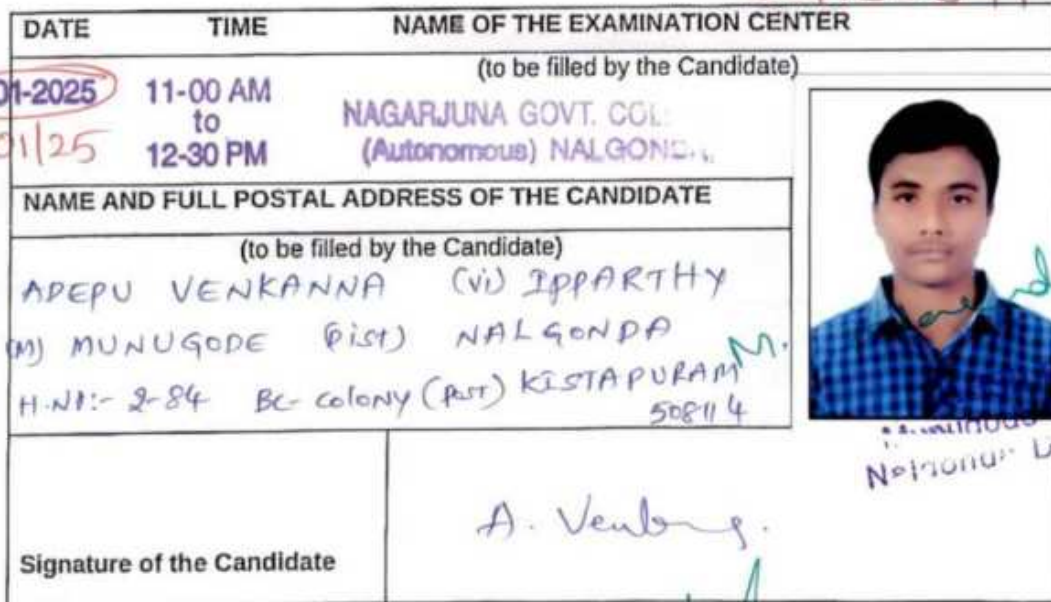 DATE TIME NAME OF THE EXAMINATION CENTER
(to be filled by the Candidate)
01-2025 11-00 AM
to
12-30 PM
01/25
NAGARJUNA GOVT. COL
(Autonomous) NALGOND
NAME AND FULL POSTAL ADDRESS OF THE CANDIDATE
(to be filled by the Candidate)
ADEPU VENKANNA (Vi) IPPARTHY
(M) MUNUGODE (Dist) NALGONDA
H.NO:- 2-84 BC- colony (Post) KISTAPURAM
508114
M.
Signature of the Candidate
A.